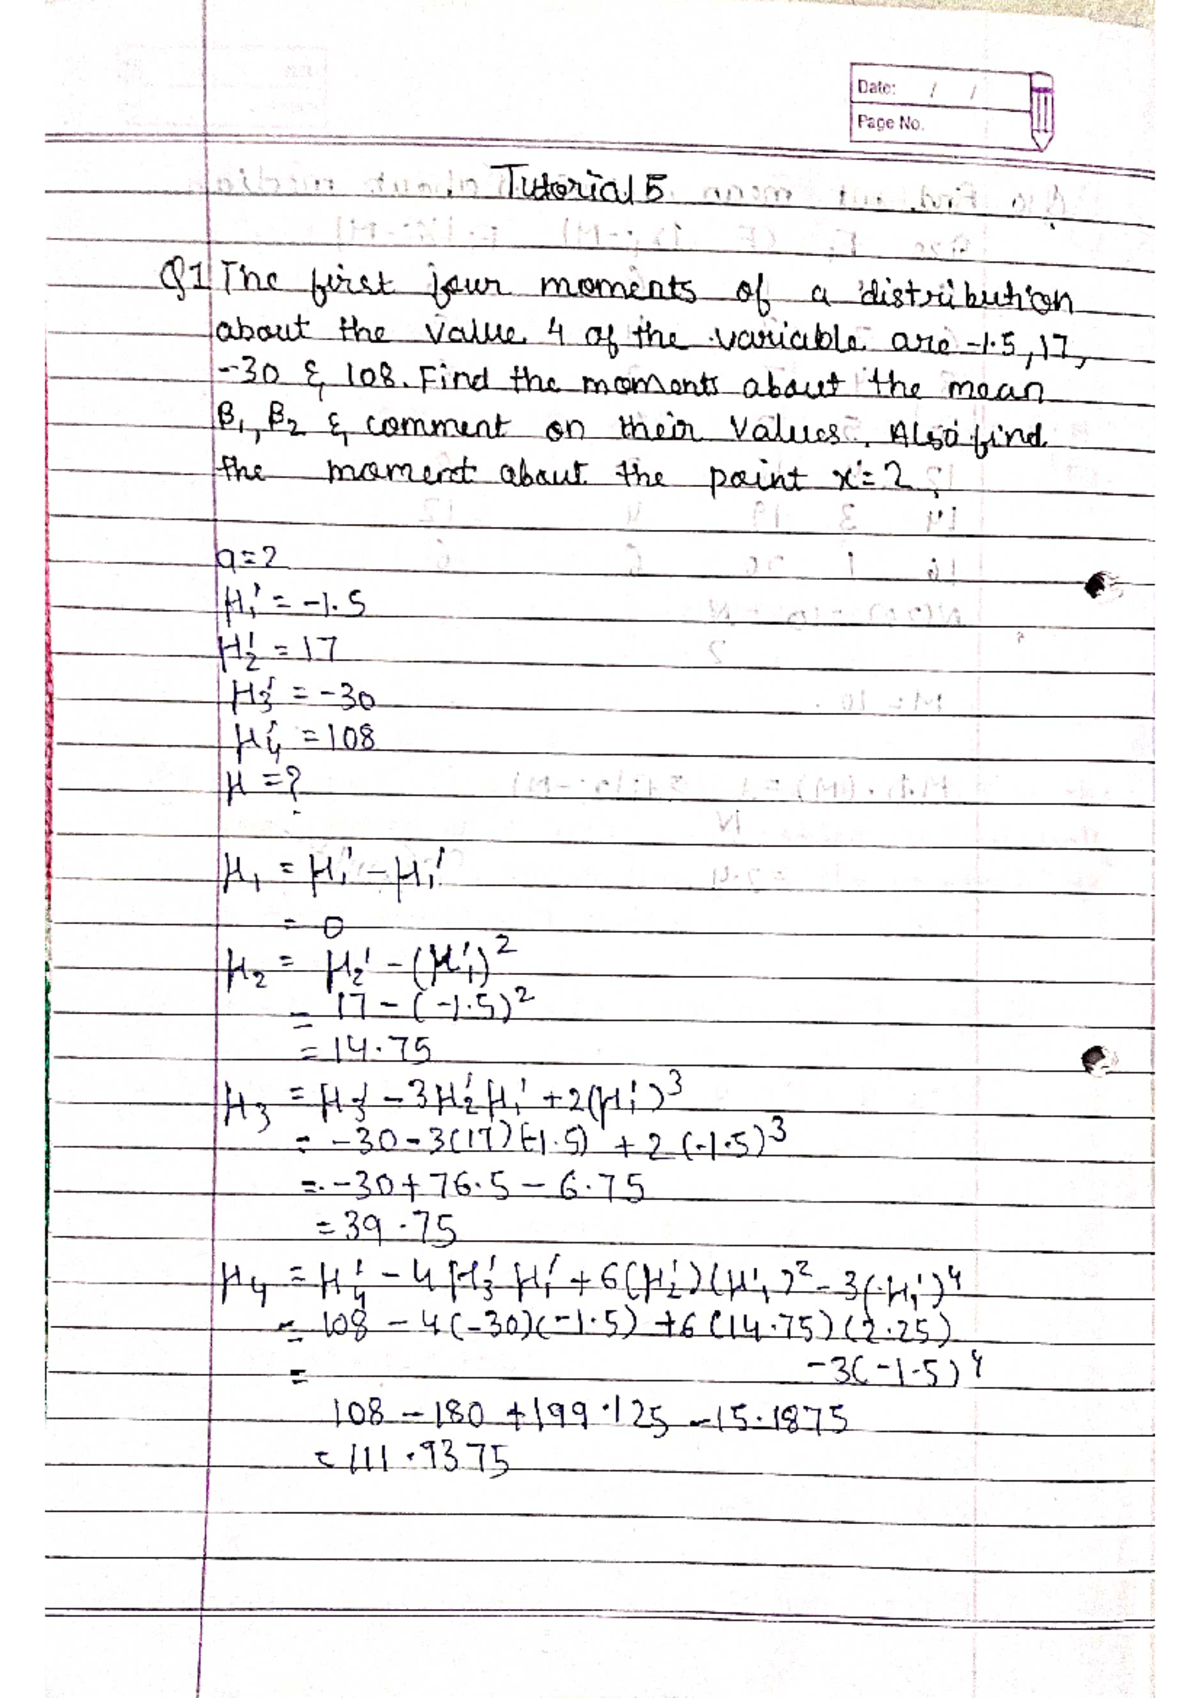 Date: / /
Page No.
Tutorial 5
Q1 The first four moments of a distribution
about the value 4 of the variable are -1.5, 17,
-30 & 108. Find the moments about the mean
β₁, β₂ & comment on their values. Also find
the moment about the point x = 2.
a=2
μ₁' = -1.5
μ₂' = 17
μ₃' = -30
μ₄' = 108
μ = ?
μ₁ = μ₁' - μ₁'
= 0
μ₂ = μ₂' - (μ₁')²
= 17 - (-1.5)²
= 14.75
μ₃ = μ₃' - 3μ₂'μ₁' + 2(μ₁')³
= -30 - 3(17)(-1.5) + 2(-1.5)³
= -30 + 76.5 - 6.75
= 39.75
μ₄ = μ₄' - 4μ₃'μ₁' + 6(μ₂')(μ₁')² - 3(μ₁')⁴
= 108 - 4(-30)(-1.5) + 6(14.75)(2.25)
= -3(-1.5)⁴
108 - 180 + 199.125 - 15.1875
= 111.9375